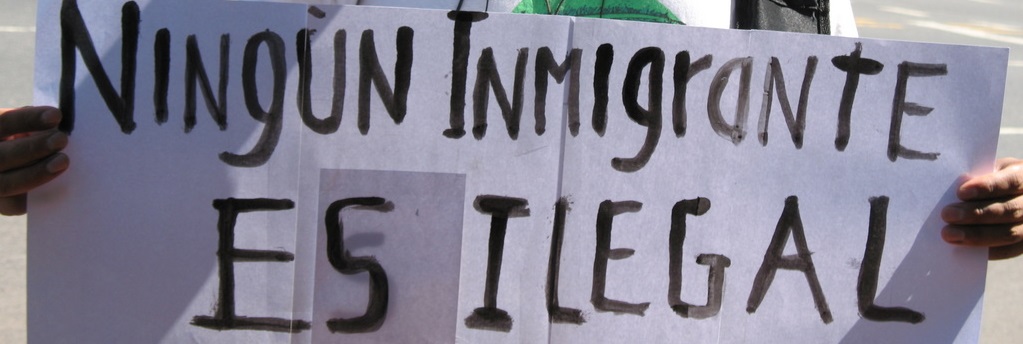 NINgÚN INMIgraNtE
ES ILEGAL